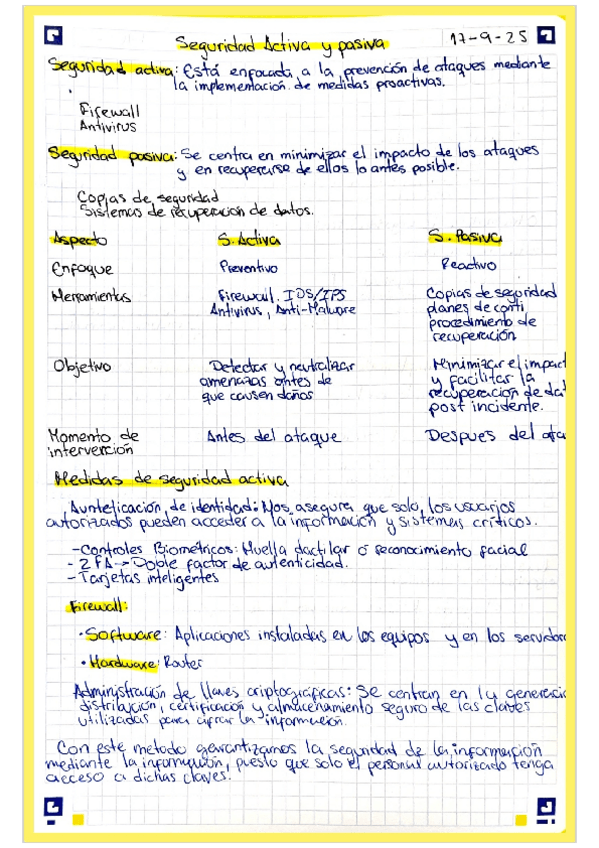 Seguridad Activa y pasiva 17-9-25
Seguridad activa: Está enfocada a la prevención de ataques mediante
la implementación de medidas proactivas.
Firewall
Antivirus
Seguridad pasiva: Se centra en minimizar el impacto de los ataques
y en recuperarse de ellos lo antes posible.
Copias de seguridad
Sistemas de recuperación de datos.
Aspecto S. Activa S. Pasiva
Enfoque Preventivo Reactivo
Herramientas Firewall. IDS/IPS Copias de seguridad
Antivirus, Anti-Malware planes de conti
procedimiento de
recuperación
Objetivo Detectar y neutralizar Minimizar el impact
amenazas antes de y facilitar la
que causen daños recuperación de dat
post incidente.
Momento de Antes del ataque Despues del ata
intervención
Medidas de seguridad activa
Auntetificación de identidad: Nos asegura que solo los usuarios
autorizados pueden acceder a la información y sistemas críticos.
-Controles Biometricos: Huella dactilar o reconocimiento facial
- 2FA→Doble factor de autenticidad.
- Tarjetas inteligentes
Firewall:
• Software: Aplicaciones instaladas en los equipos y en los servidore
• Hardware: Router
Administración de llaves criptográficas: Se centran en la generació
distribución, certificación y almacenamiento seguro de las claves
utilizadas para cifrar la información.
Con este metodo garantizamos la seguridad de la información
mediante la información, puesto que solo el personal autorizado tenga
acceso a dichas claves.